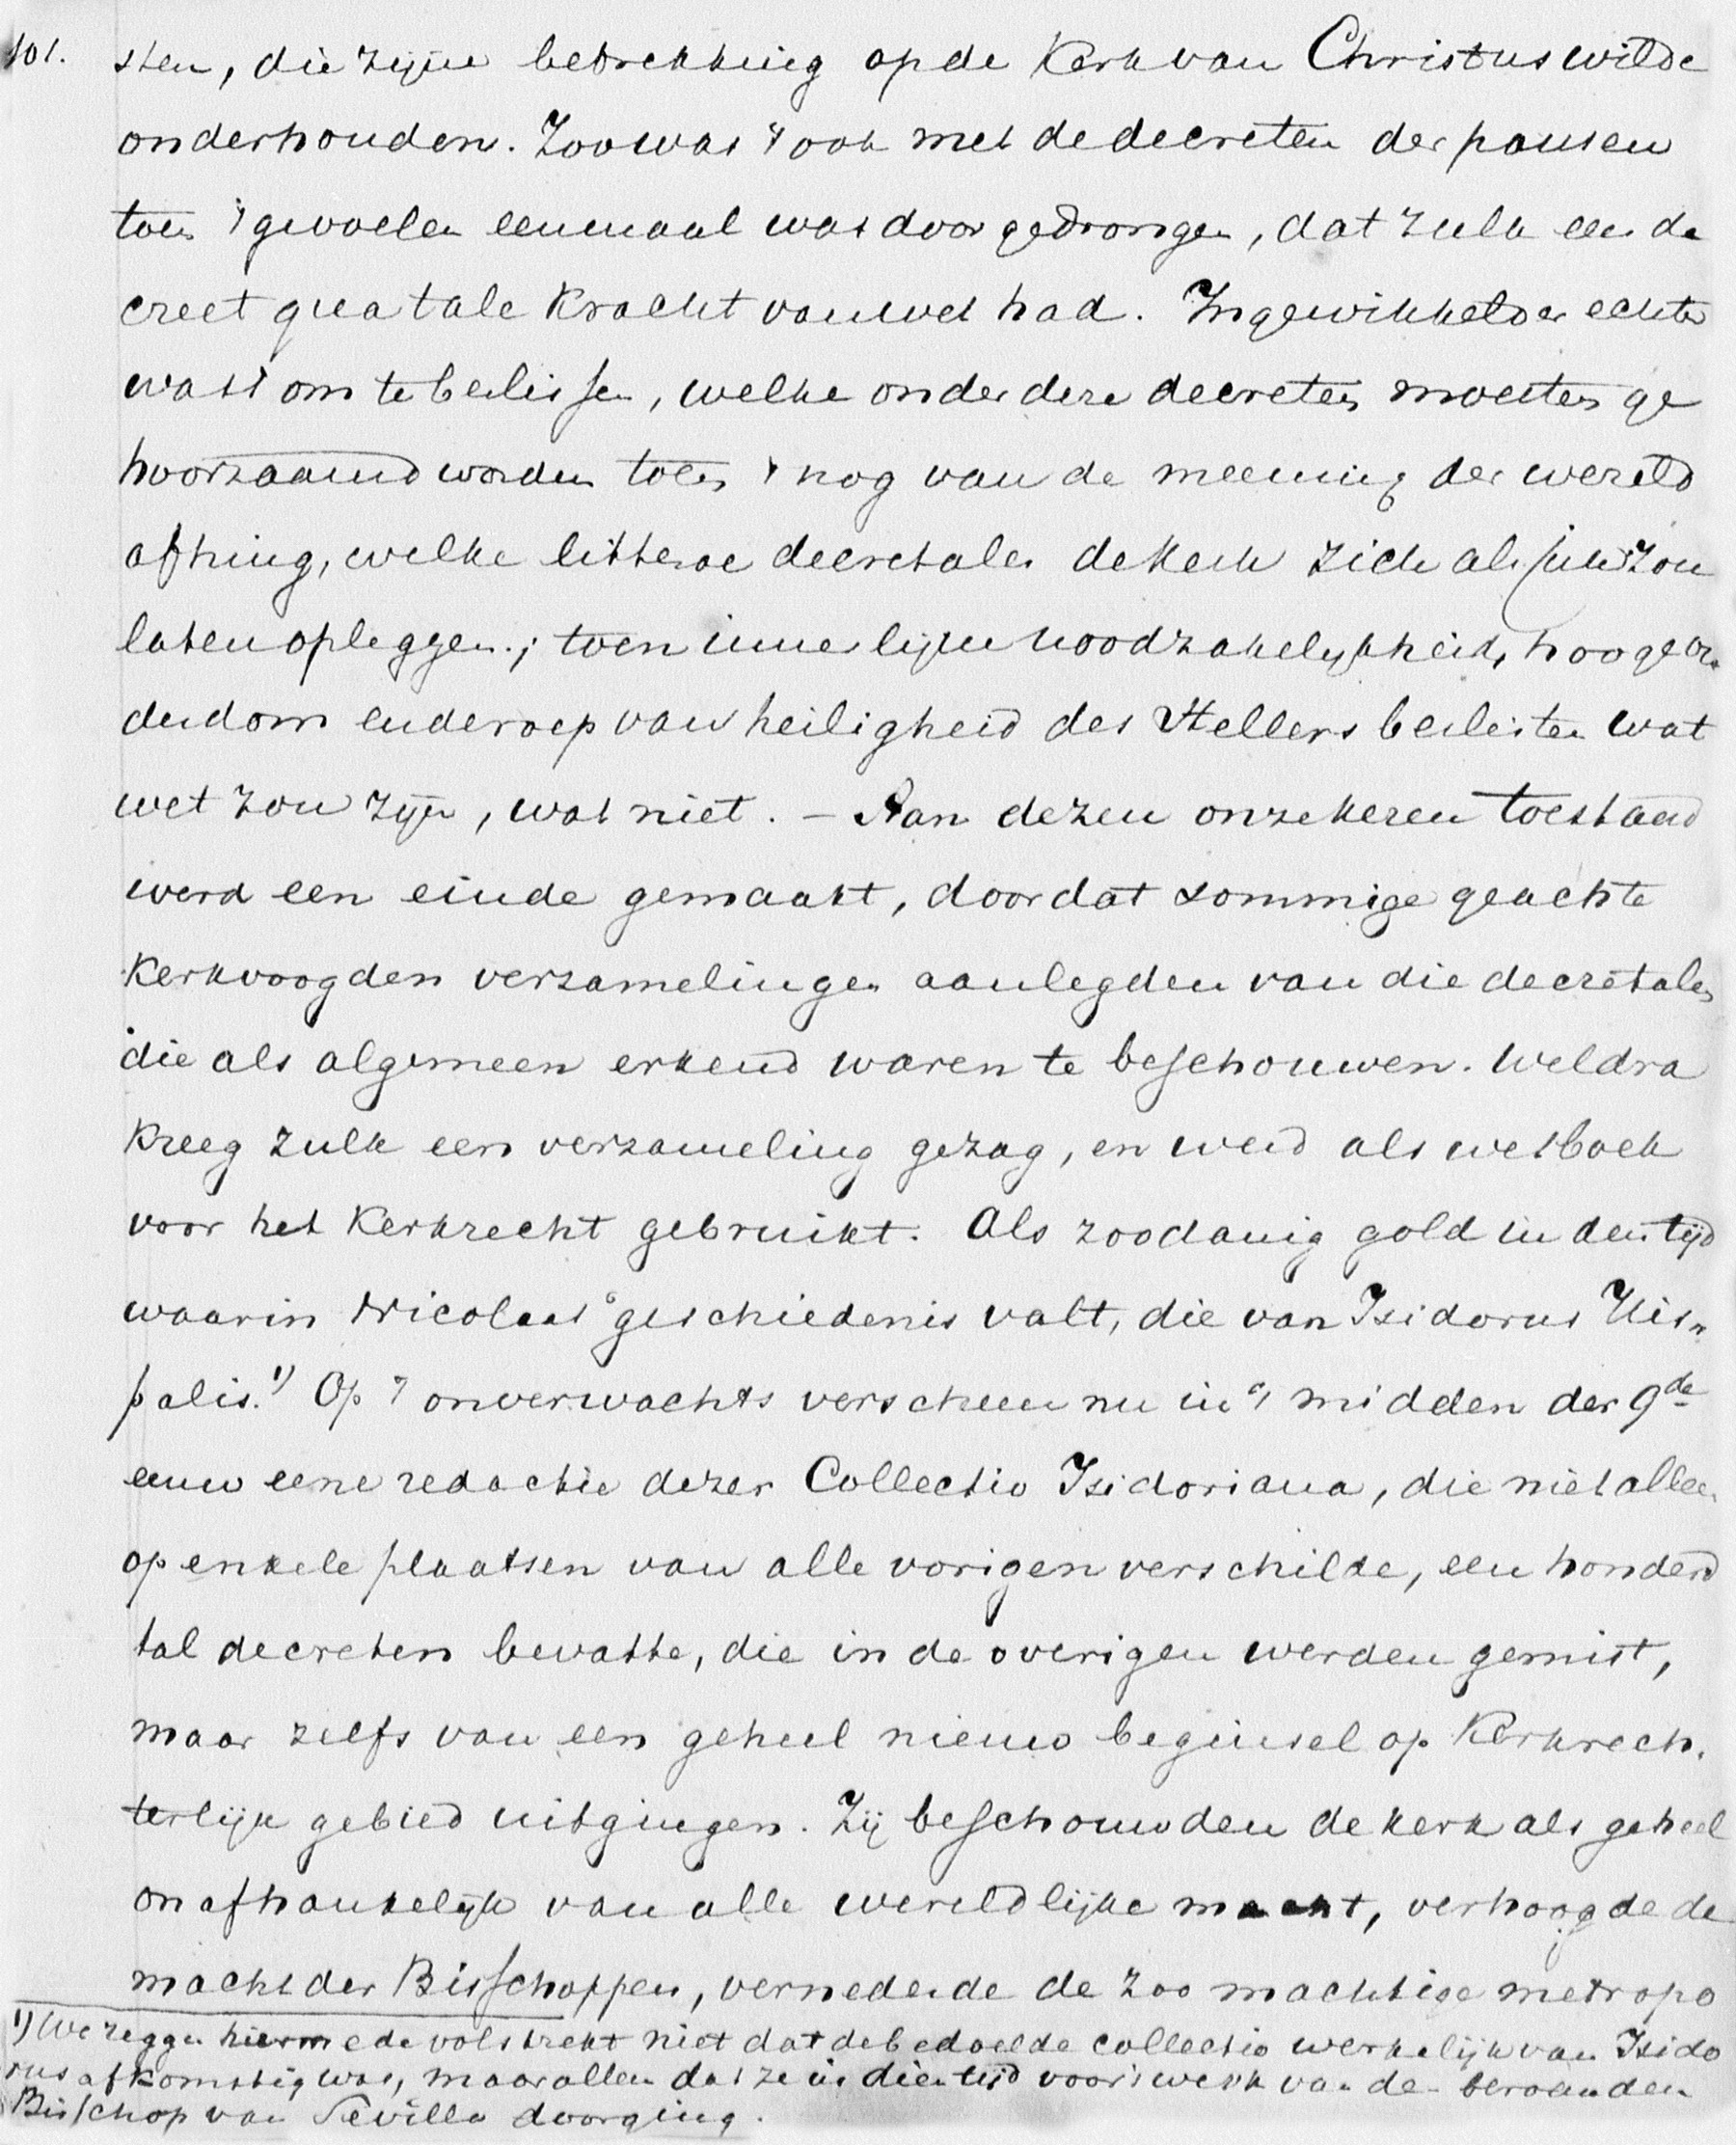 101. sten, die zijne betrekking op de Kerk van Christus wilde
onderhouden. Zoo was 't ook met de decreten der pausen
toen 't gevoelen eenmaal was doorgedrongen, dat zulk een de
creet qua tale kracht van wet had. Ingewikkelder echter
was 't om te beslissen, welke onder deze decreten moesten ge
hoorzaamd worden toen 't nog van de meening der wereld
afhing, welke litterae decretales de Kerk zich als juk zou
laten opleggen; toen innerlijke noodzakelijkheid, hooge ou
derdom en de roep van heiligheid des stellers beslisten wat
wet zou zijn, wat niet. – Aan dezen onzekeren toestand
werd een einde gemaakt, doordat sommige geachte
Kerkvoogden verzamelingen aanlegden van die decretales
die als algemeen erkend waren te beschouwen. Weldra
kreeg zulk een verzameling gezag, en werd als wetboek
voor het Kerkrecht gebruikt. Als zoodanig gold in den tijd
waarin Nicolaas' geschiedenis valt, die van Isidorus His-
palis.¹) Op 't onverwachts verscheen nu in 't midden der 9de
eeuw eene redactie dezer Collectio Isidoriana, die niet alleen
op enkele plaatsen van alle vorigen verschilde, een honderd
tal decreten bevatte, die in de overigen werden gemist,
maar zelfs van een geheel nieuw beginsel op Kerkrech-
terlijk gebied uitgingen. Zij beschouwden de kerk als geheel
onafhankelijk van alle wereldlijke macht, verhoogde de
macht der Bisschoppen, vernederde de zoo machtige metropo
¹) We zeggen hiermede volstrekt niet dat de bedoelde collectio werkelijk van Isido
rus afkomstig was, maar alleen dat ze in dien tijd voor 't werk van den beroemden
Bisschop van Sevilla doorging.